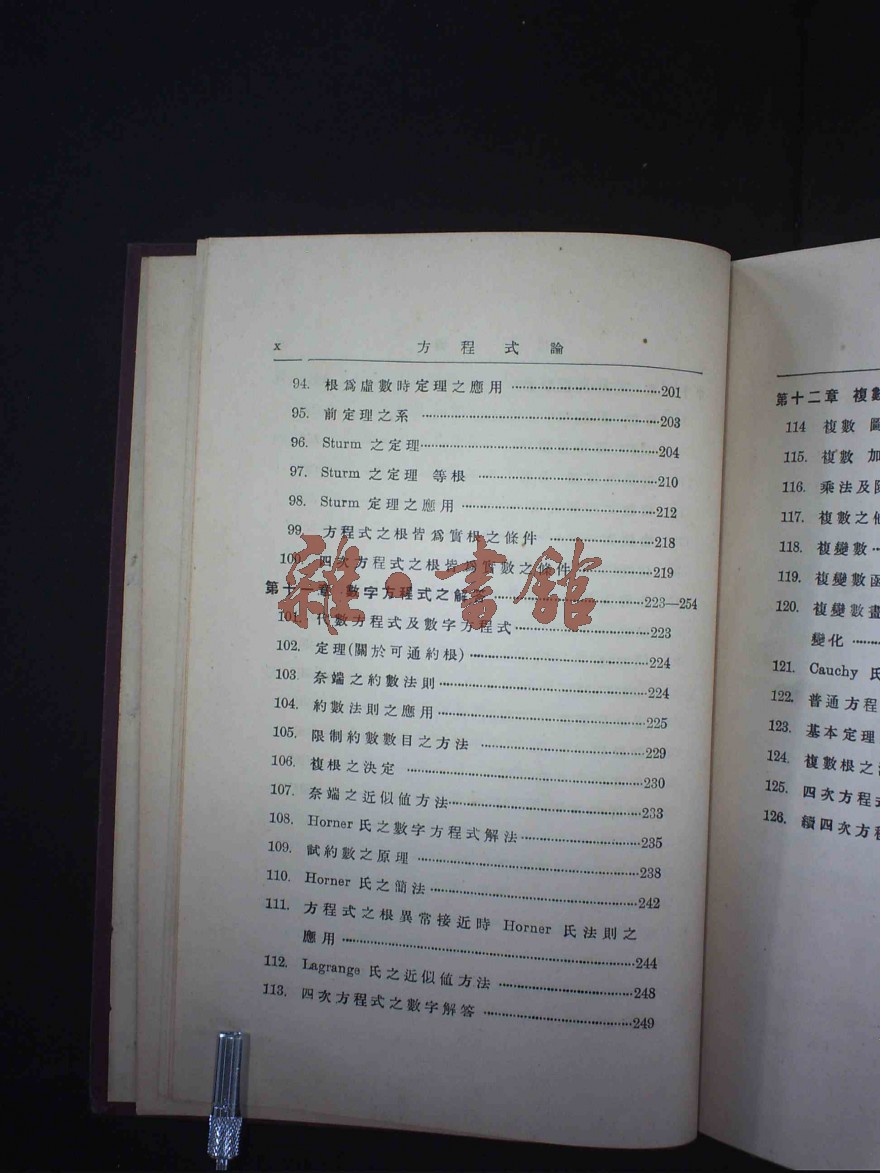 x 方程式論
94. 根爲虛數時定理之應用 …… 201
95. 前定理之系 …… 203
96. Sturm 之定理 …… 204
97. Sturm 之定理 等根 …… 210
98. Sturm 定理之應用 …… 212
99. 方程式之根皆爲實根之條件 …… 218
100. 四次方程式之根皆爲實數之條件 …… 219
第十一章 數字方程式之解答 …… 223—254
101. 代數方程式及數字方程式 …… 223
102. 定理(關於可通約根) …… 224
103. 奈端之約數法則 …… 224
104. 約數法則之應用 …… 225
105. 限制約數數目之方法 …… 229
106. 複根之決定 …… 230
107. 奈端之近似値方法 …… 233
108. Horner 氏之數字方程式解法 …… 235
109. 試約數之原理 …… 238
110. Horner 氏之簡法 …… 242
111. 方程式之根異常接近時 Horner 氏法則之
應用 …… 244
112. Lagrange 氏之近似値方法 …… 248
113. 四次方程式之數字解答 …… 249
雜·書館
第十二章 複數
114 複數
115. 複數 加
116. 乘法及
117. 複數之
118. 複變數 ……
119. 複變數函
120. 複變數
變化 ……
121. Cauchy 氏
122. 普通方程
123. 基本定理
124. 複數根之
125. 四次方程式
126. 續四次方程